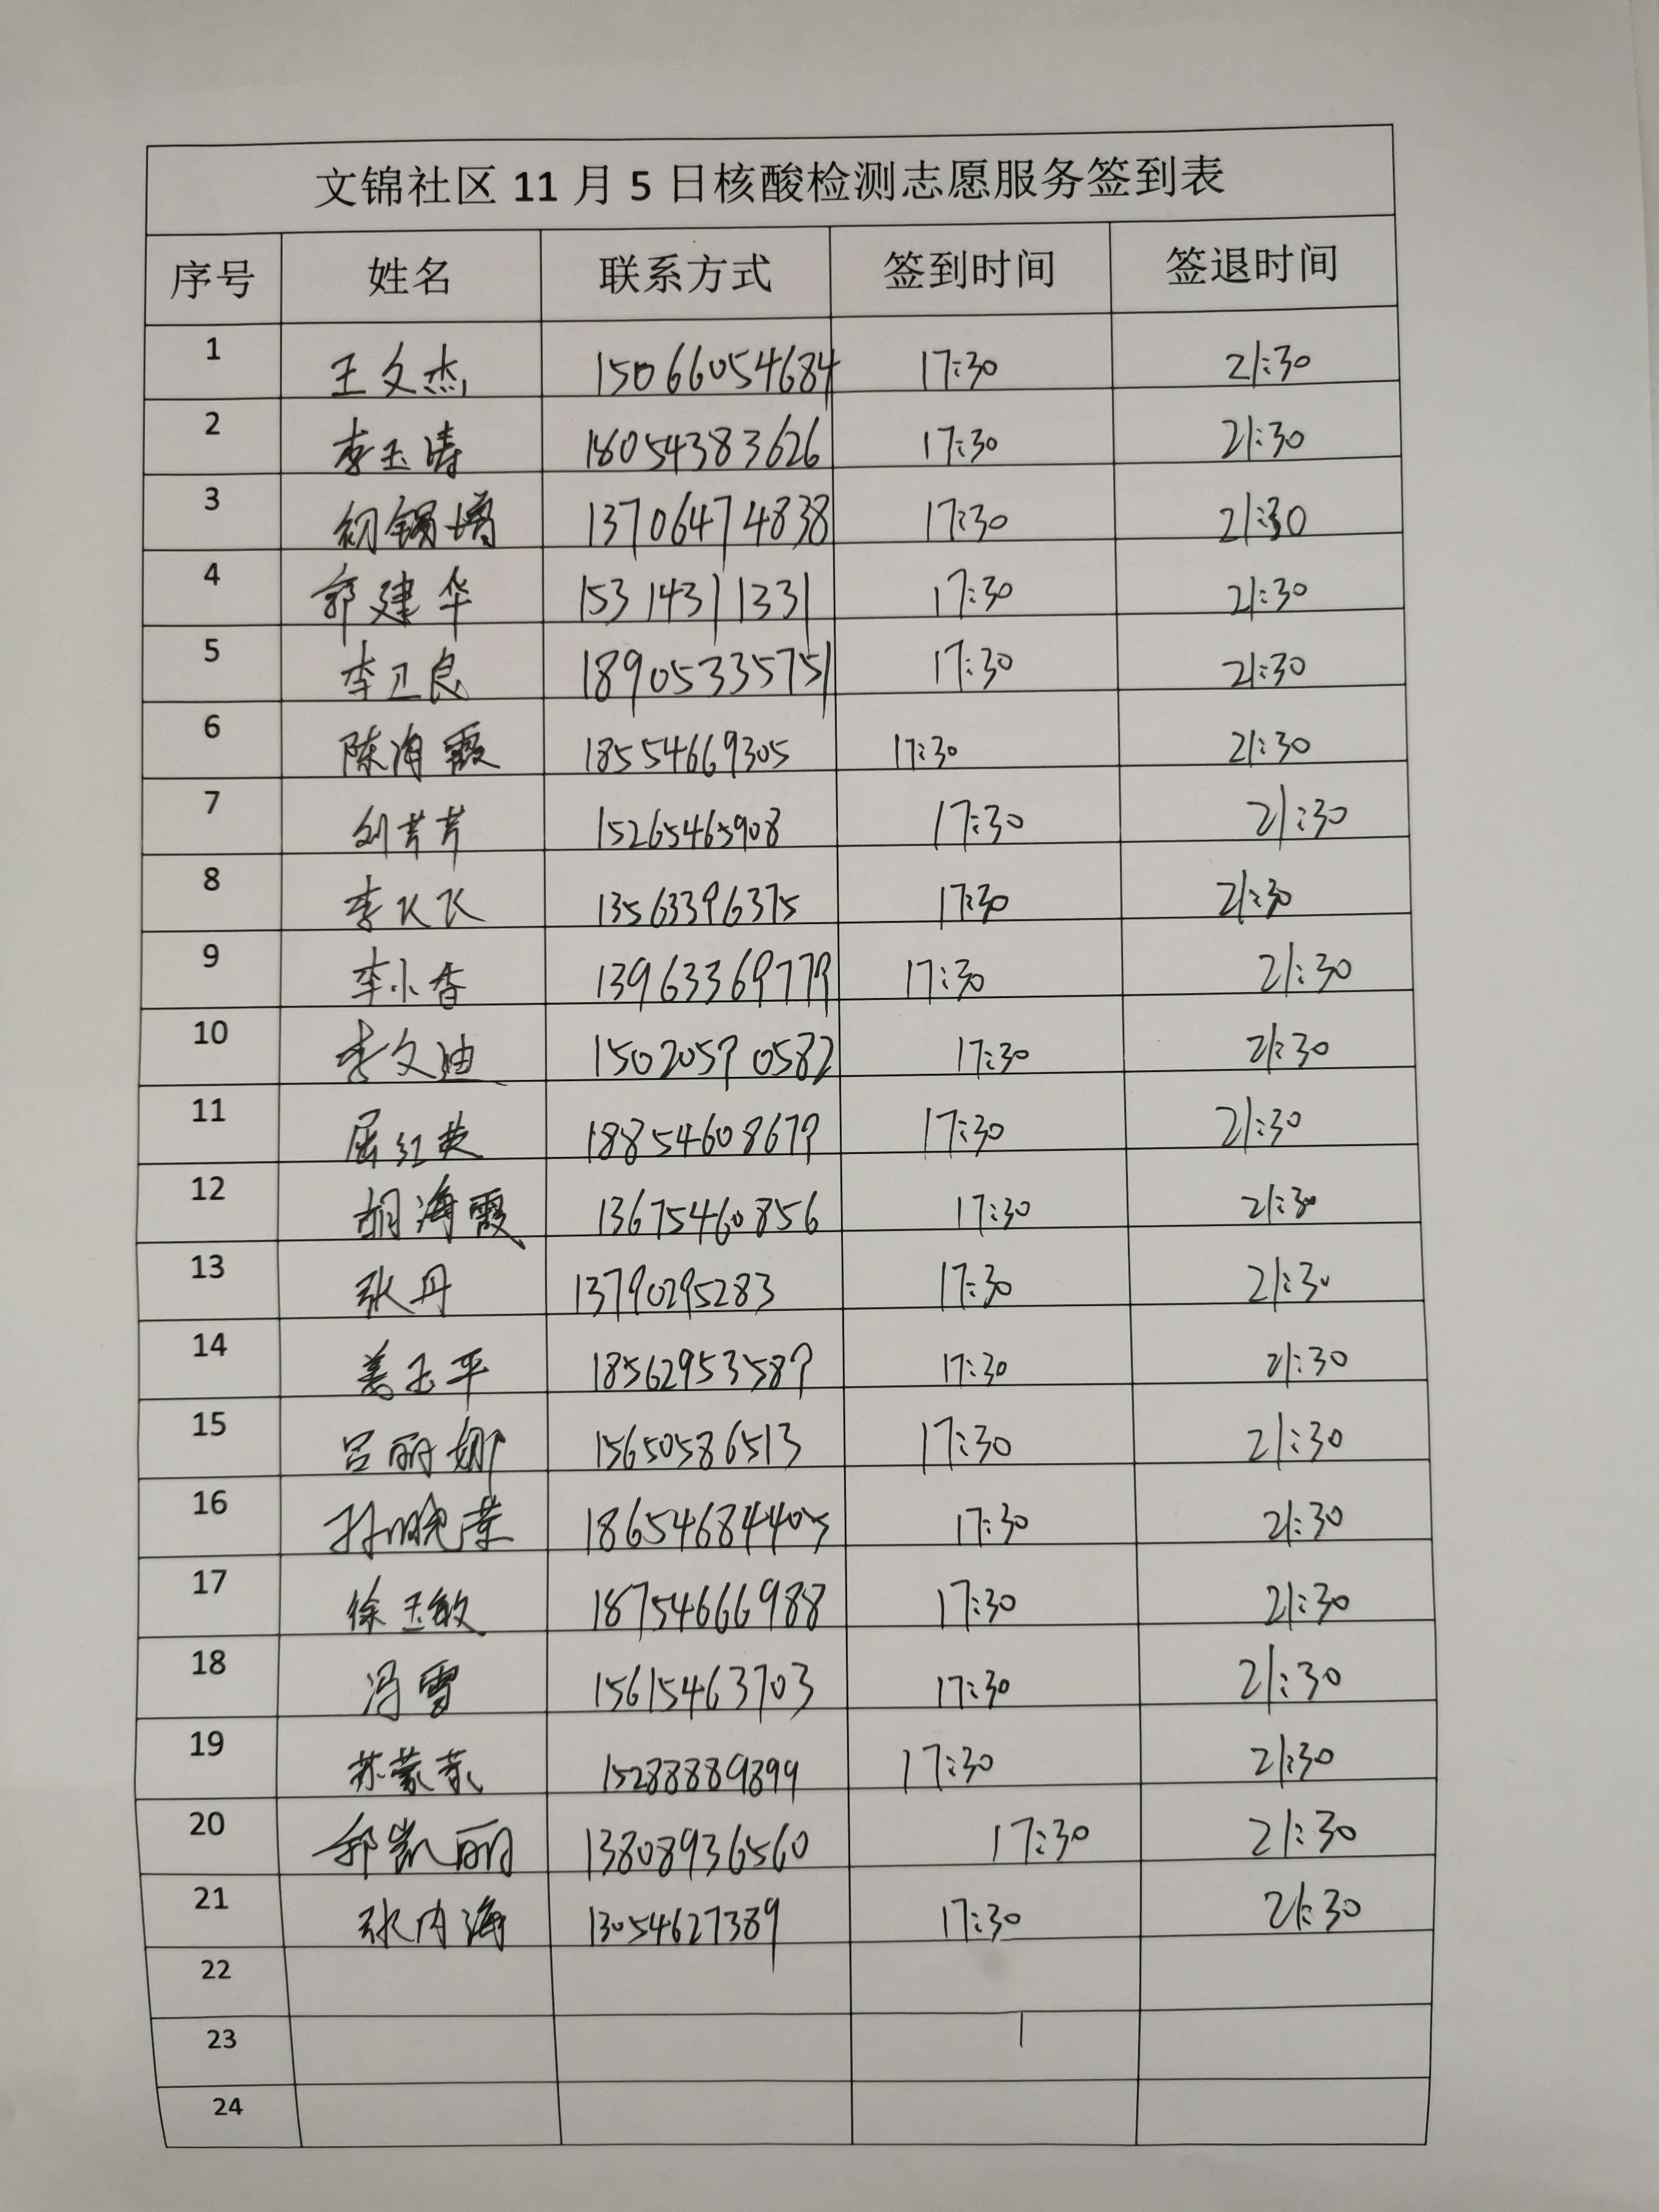 文锦社区11月5日核酸检测志愿服务签到表
序号 姓名 联系方式 签到时间 签退时间
1 王文杰 15066054684 17:30 21:30
2 李玉涛 18054383626 17:30 21:30
3 初锡增 13706474838 17:30 21:30
4 郭建华 15314311331 17:30 21:30
5 李卫良 18905335751 17:30 21:30
6 陈海霞 18554669305 17:30 21:30
7 刘芹芹 15265465908 17:30 21:30
8 李飞飞 13563396375 17:30 21:30
9 李小香 13963369779 17:30 21:30
10 李文迪 15020590582 17:30 21:30
11 屈红英 18854608679 17:30 21:30
12 胡海霞 13675460856 17:30 21:30
13 张丹 13790295283 17:30 21:30
14 姜玉平 18562953589 17:30 21:30
15 吕丽娜 15650586513 17:30 21:30
16 孙晓荣 18654684405 17:30 21:30
17 徐玉敏 18754666988 17:30 21:30
18 冯雪 15615463703 17:30 21:30
19 苏蒙蒙 15288889899 17:30 21:30
20 郭凯丽 13808936560 17:30 21:30
21 张内海 13054627389 17:30 21:30
22
23
24